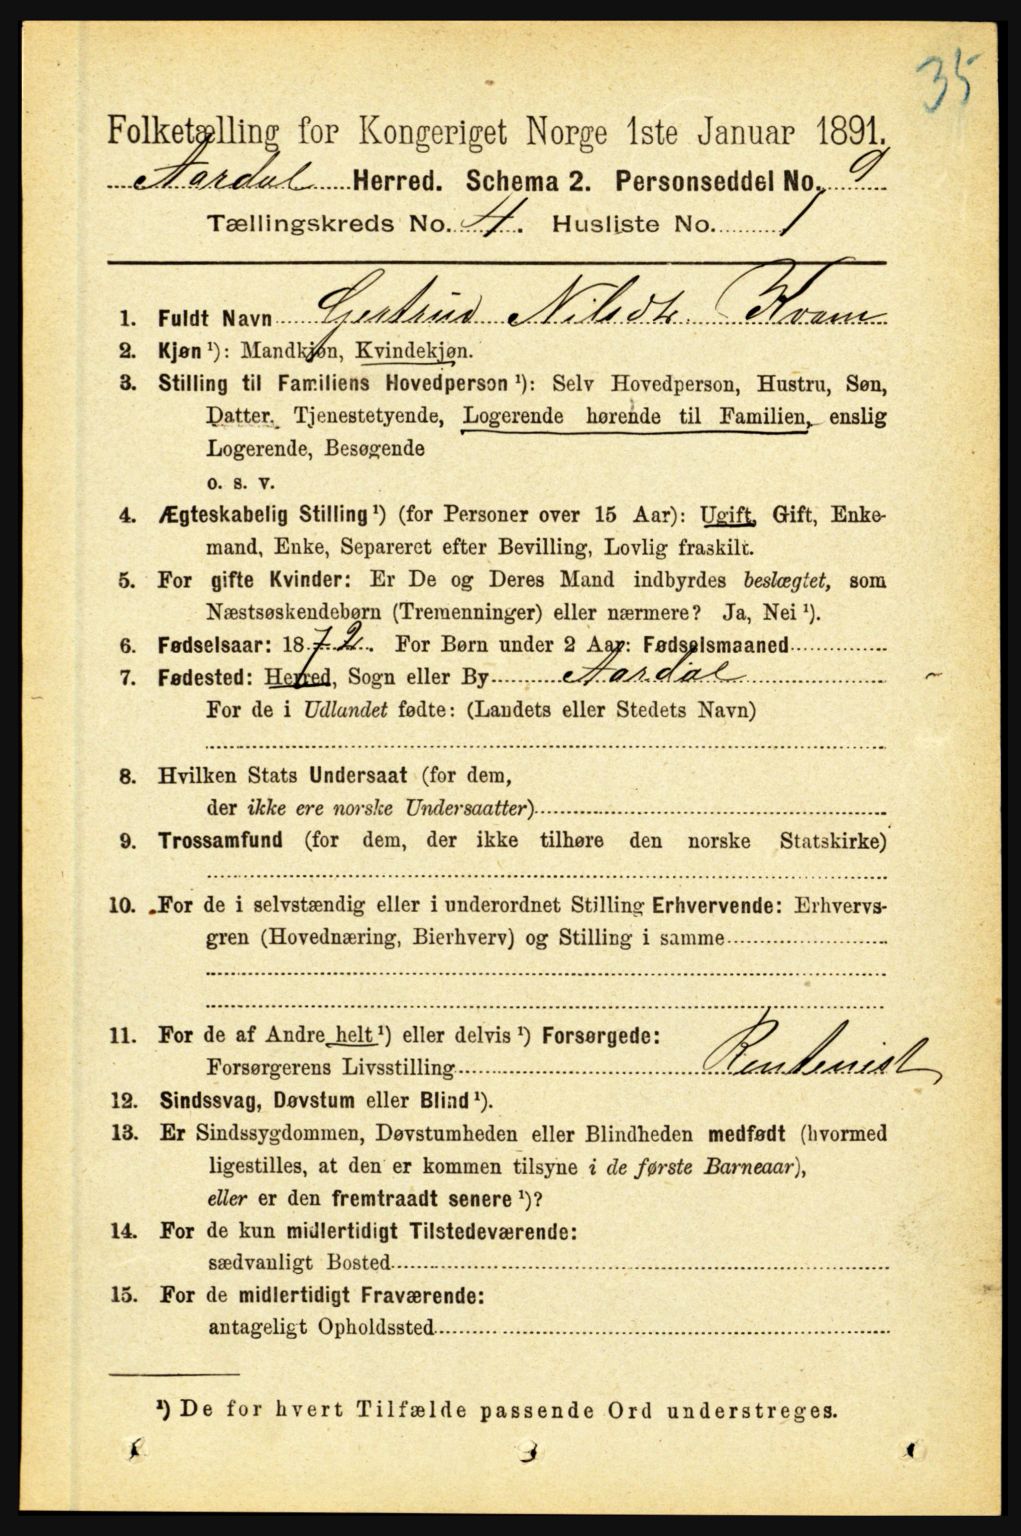 35
Folketælling for Kongeriget Norge 1ste Januar 1891.
Aardal Herred. Schema 2. Personseddel No. 9
Tællingskreds No. 4. Husliste No. 1
1. Fuldt Navn Gjertrud Nilsdtr Kvam
2. Kjøn ¹): Mandkjøn, Kvindekjøn.
3. Stilling til Familiens Hovedperson ¹): Selv Hovedperson, Hustru, Søn,
Datter, Tjenestetyende, Logerende hørende til Familien, enslig
Logerende, Besøgende
o. s. v.
4. Ægteskabelig Stilling ¹) (for Personer over 15 Aar): Ugift, Gift, Enke-
mand, Enke, Separeret efter Bevilling, Lovlig fraskilt.
5. For gifte Kvinder: Er De og Deres Mand indbyrdes beslægtet, som
Næstsøskendebørn (Tremenninger) eller nærmere? Ja, Nei ¹).
6. Fødselsaar: 1872. For Børn under 2 Aar: Fødselsmaaned
7. Fødested: Herred, Sogn eller By Aardal
For de i Udlandet fødte: (Landets eller Stedets Navn)
8. Hvilken Stats Undersaat (for dem,
der ikke ere norske Undersaatter)
9. Trossamfund (for dem, der ikke tilhøre den norske Statskirke)
10. For de i selvstændig eller i underordnet Stilling Erhvervende: Erhvervs-
gren (Hovednæring, Bierhverv) og Stilling i samme
11. For de af Andre helt ¹) eller delvis ¹) Forsørgede:
Forsørgerens Livsstilling Rentenist
12. Sindssvag, Døvstum eller Blind ¹).
13. Er Sindssygdommen, Døvstumheden eller Blindheden medfødt (hvormed
ligestilles, at den er kommen tilsyne i de første Barneaar),
eller er den fremtraadt senere ¹)?
14. For de kun midlertidigt Tilstedeværende:
sædvanligt Bosted
15. For de midlertidigt Fraværende:
antageligt Opholdssted
¹) De for hvert Tilfælde passende Ord understreges.